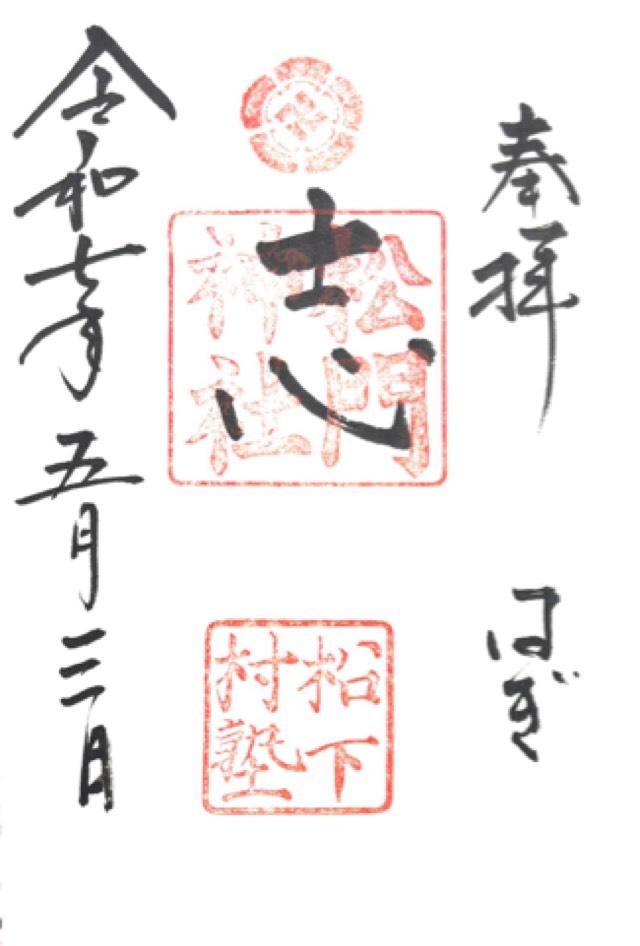 奉拝
はぎ
志
松門
神社
松下
村塾
令和七年五月三日